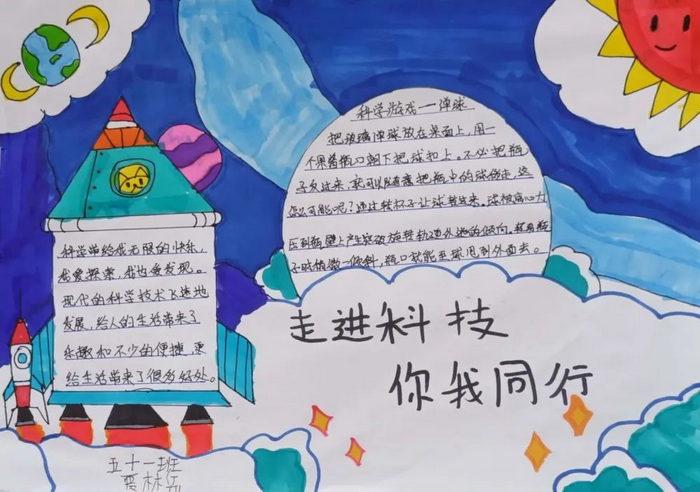 科学游戏一弹球
把玻璃弹球放在桌面上,用一
个果酱瓶口朝下把球扣上。不必把瓶
子反过来,就可以随意把瓶中的球经走,这
怎么可能呢?通过转杯子让球转起来。球在离心力
压到瓶壁上产生
子时稍微一倾斜,瓶口就能至球甩到外面去。
科学带给我无限的快乐,
我爱探索,我也爱发现。
现代的科学技术飞速地
发展,给人的生活带来了
乐趣和不少的便捷,更
给生活带来了很多好处。
走进科技
你我同行
五十一班
林